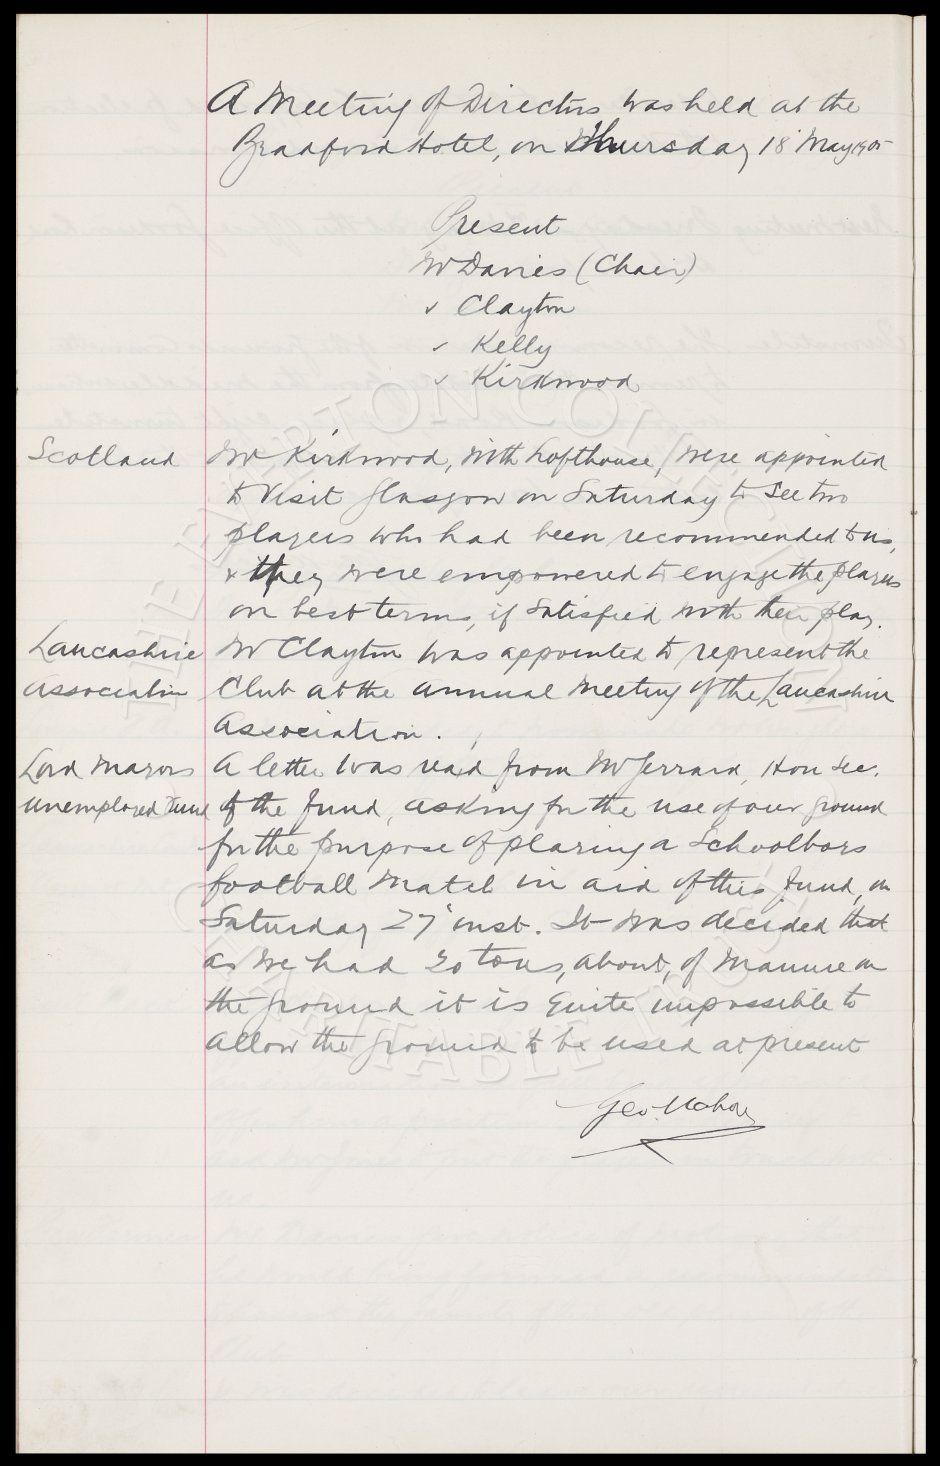 A Meeting of Directors was held at the
Bradford Hotel, on Thursday 18 May 1905
Present
Mr Davies (Chair)
" Clayton
" Kelly
" Kirkwood
Scotland Mr Kirkwood, with Lofthouse, were appointed
to visit Glasgow on Saturday to see two
players who had been recommended to us,
& they were empowered to engage the players
on best terms, if satisfied with their play.
Lancashire Mr Clayton was appointed to represent the
Association Club at the annual meeting of the Lancashire
Association.
Lord Mayors A letter was read from Mr Jerrard, Hon Sec.
unemployed Fund of the Fund, asking for the use of our ground
for the purpose of playing a Schoolboys
football match in aid of this fund, on
Saturday 27 inst. It was decided that
as we had 20 tons, about, of manure on
the ground it is quite impossible to
allow the ground to be used at present
Geo. Mahon
THE EVERTON COLLECTION
CHARITABLE TRUST